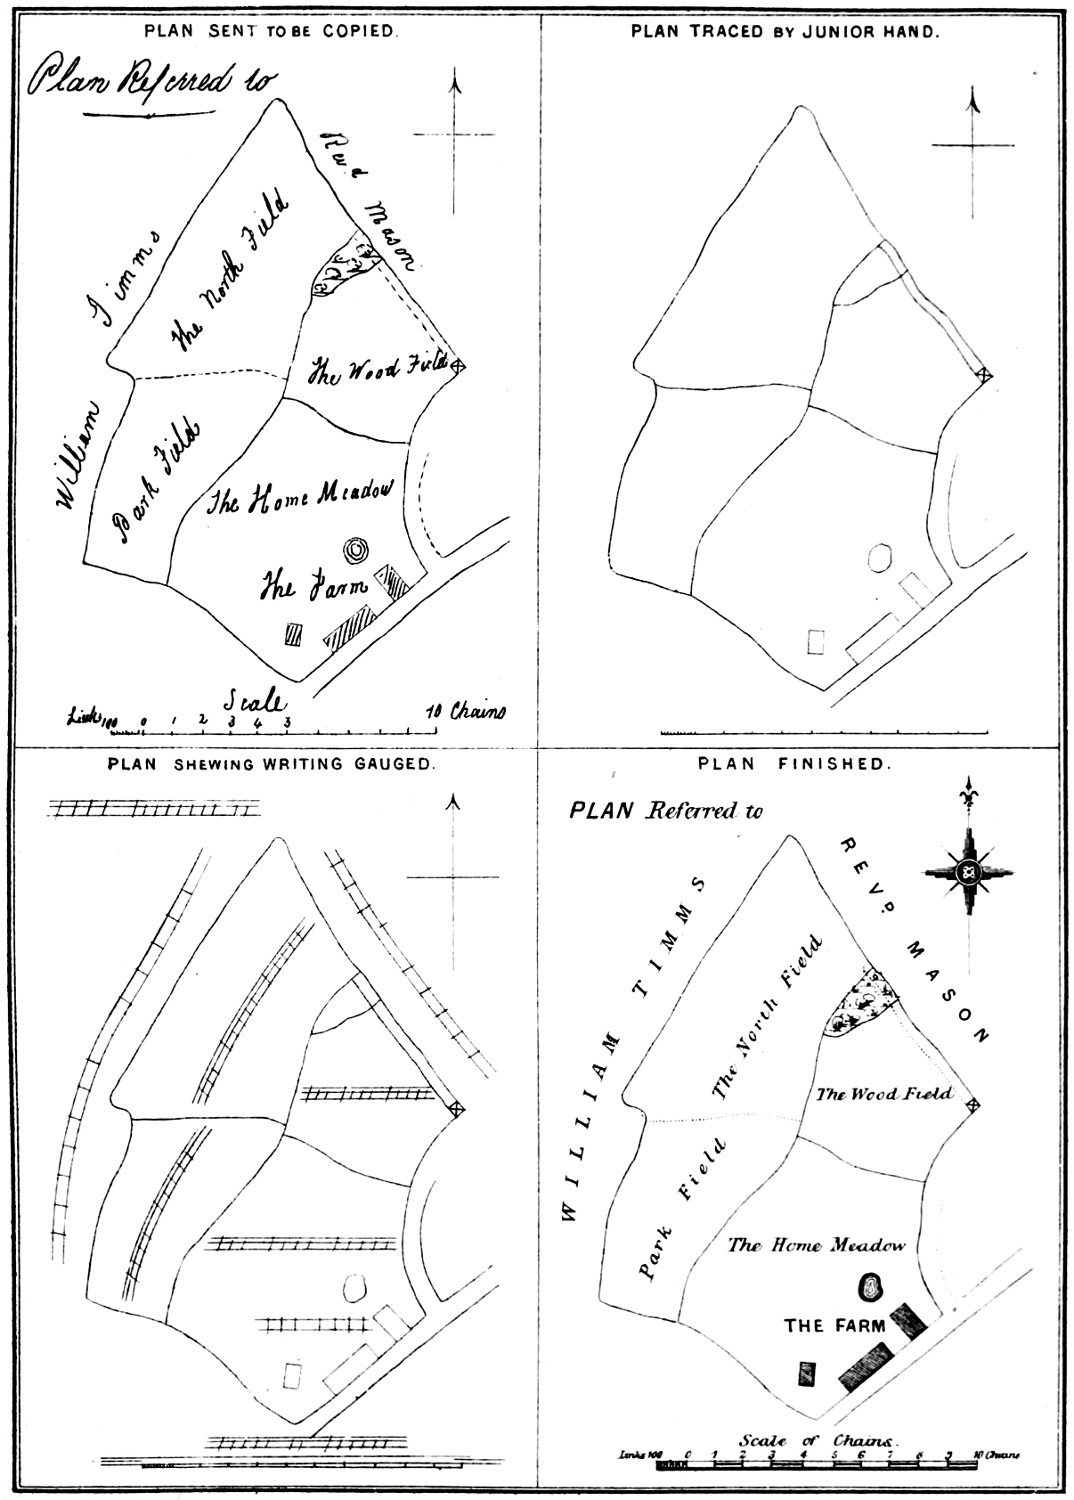 PLAN SENT TO BE COPIED.
Plan Referred to
Revd Mason
William Timms
The North Field
The Wood Field
Park Field
The Home Meadow
The Farm
Scale
Links 100 0 1 2 3 4 5 10 Chains
PLAN TRACED BY JUNIOR HAND.
PLAN SHEWING WRITING GAUGED.
PLAN FINISHED.
PLAN Referred to
WILLIAM TIMMS
REVD. MASON
The North Field
The Wood Field
Park Field
The Home Meadow
THE FARM
Scale of Chains.
Links 100 0 1 2 3 4 5 6 7 8 9 10 Chains